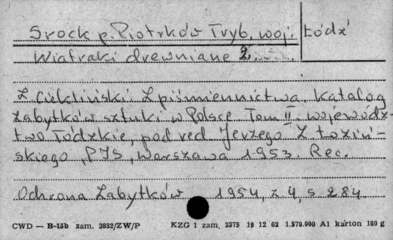 Srock p. Piotrków Tryb. woj. Łódź
Wiatraki drewniane 2
Z. Ciekliński Z piśmiennictwa. Katalog
zabytków sztuki w Polsce Tom II. wojewódz-
two łódzkie, pod red Jerzego Z. Łoziń-
skiego, PIS, Warszawa 1953. Rec.
Ochrona Zabytków 1954, z 4, s 284.
CWD — B-15b zam. 2032/ZW/P KZG 1 zam. 2375 19 12 62 1.570.000 A1 karton 180 g